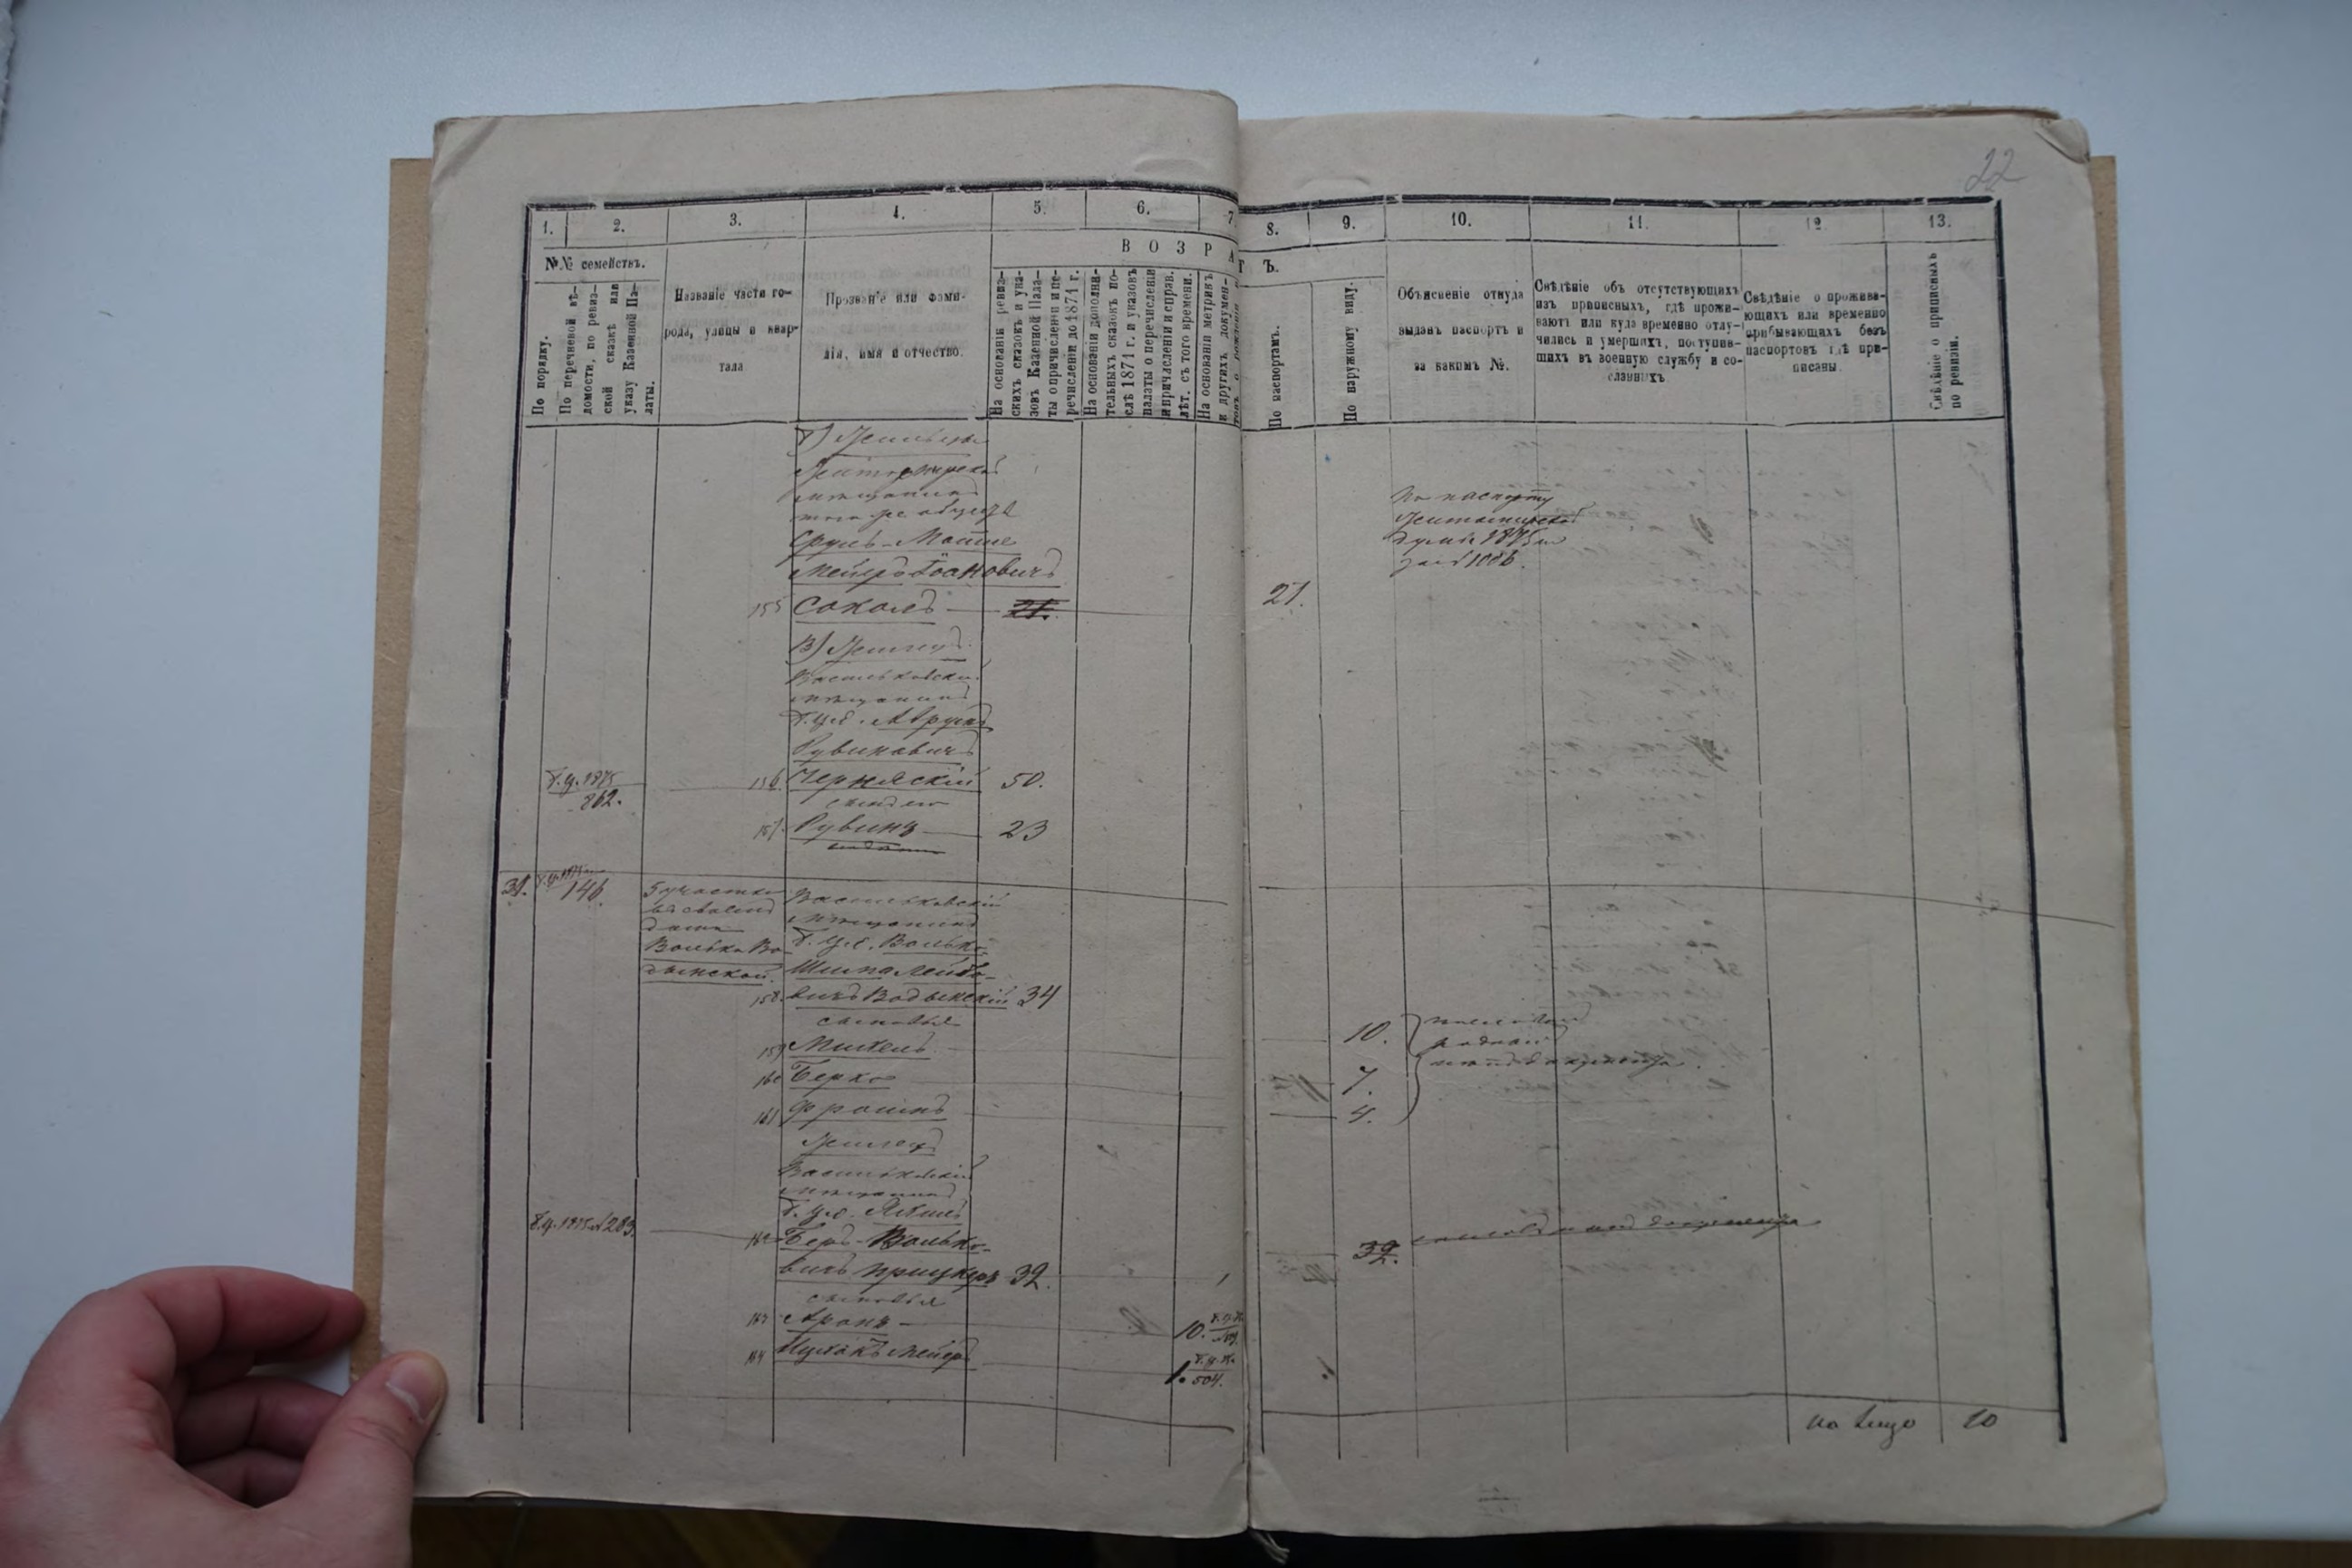 22
1. 2. 3. 4. 5. 6. 7
8. 9. 10. 11. 12 13.
В О З Р А
Т Ъ.
№№ семействъ.
По порядку.
По перечневой вѣ-
домости, по ревиз-
ской сказкѣ или
указу Казенной Па-
латы.
Названіе части го-
рода, улицы и квар-
тала
Прозваніе или фами-
лія, имя и отчество.
На основаніи ревиз-
скихъ сказокъ и ука-
зовъ Казенной Пала-
ты о причисленіи и пе-
речисленіи до 1871 г.
На основаніи дополни-
тельныхъ сказокъ по-
слѣ 1871 г. и указовъ
палаты о перечисленіи
и причисленіи и справ.
лѣт. съ того времени.
На основаніи метрикъ
и другихъ докумен-
товъ о рожденіи
По паспортамъ.
По наружному виду.
Объясненіе откуда
выданъ паспортъ и
за какимъ №.
Свѣдѣніе объ отсутствующихъ
изъ приписныхъ, гдѣ прожи-
ваютъ или куда временно отлу-
чились и умершихъ, поступив-
шихъ въ военную службу и со-
сланныхъ
Свѣдѣніе о прожива-
ющихъ или временно
прибывающихъ безъ
паспортовъ гдѣ при-
писаны.
Свѣдѣніе о приписныхъ
по ревизіи.
Житомирскій
мѣщанинъ
того же общест
Сруль-Мошке
Мейеръ Іосновичъ
155 Соколъ 21.
По паспорту
Житомирской
думы 1875
за № 1006.
21.
В) Жилецъ
Васильковскій
мѣщанинъ
Б. Ц. Аврумъ
Рувиновичъ
Б. Ц. 1875
862.
156. Черняскій 50.
сынъ его
157. Рувинъ 23
31. 146. 5 участка
въ своемъ
домѣ
Волька Во-
дынской.
Васильковскій
мѣщанинъ
Б. Ц. Волько-
Шипа Лейбо-
158. вичъ Водынскій 34
сыновья
159 Михель 10.
160 Берко 7.
161 Фроимъ 4.
Жилецъ
Васильковскій
мѣщанинъ
Б. Ц. Якиль
Б. Ц. 1875 № 283.
162 Беръ-Волько-
вичъ Прицкеръ 32.
32.
сыновья
163 Аронъ 10.
164 Ицхакъ Мейеръ 1. 504.
на лицо 10